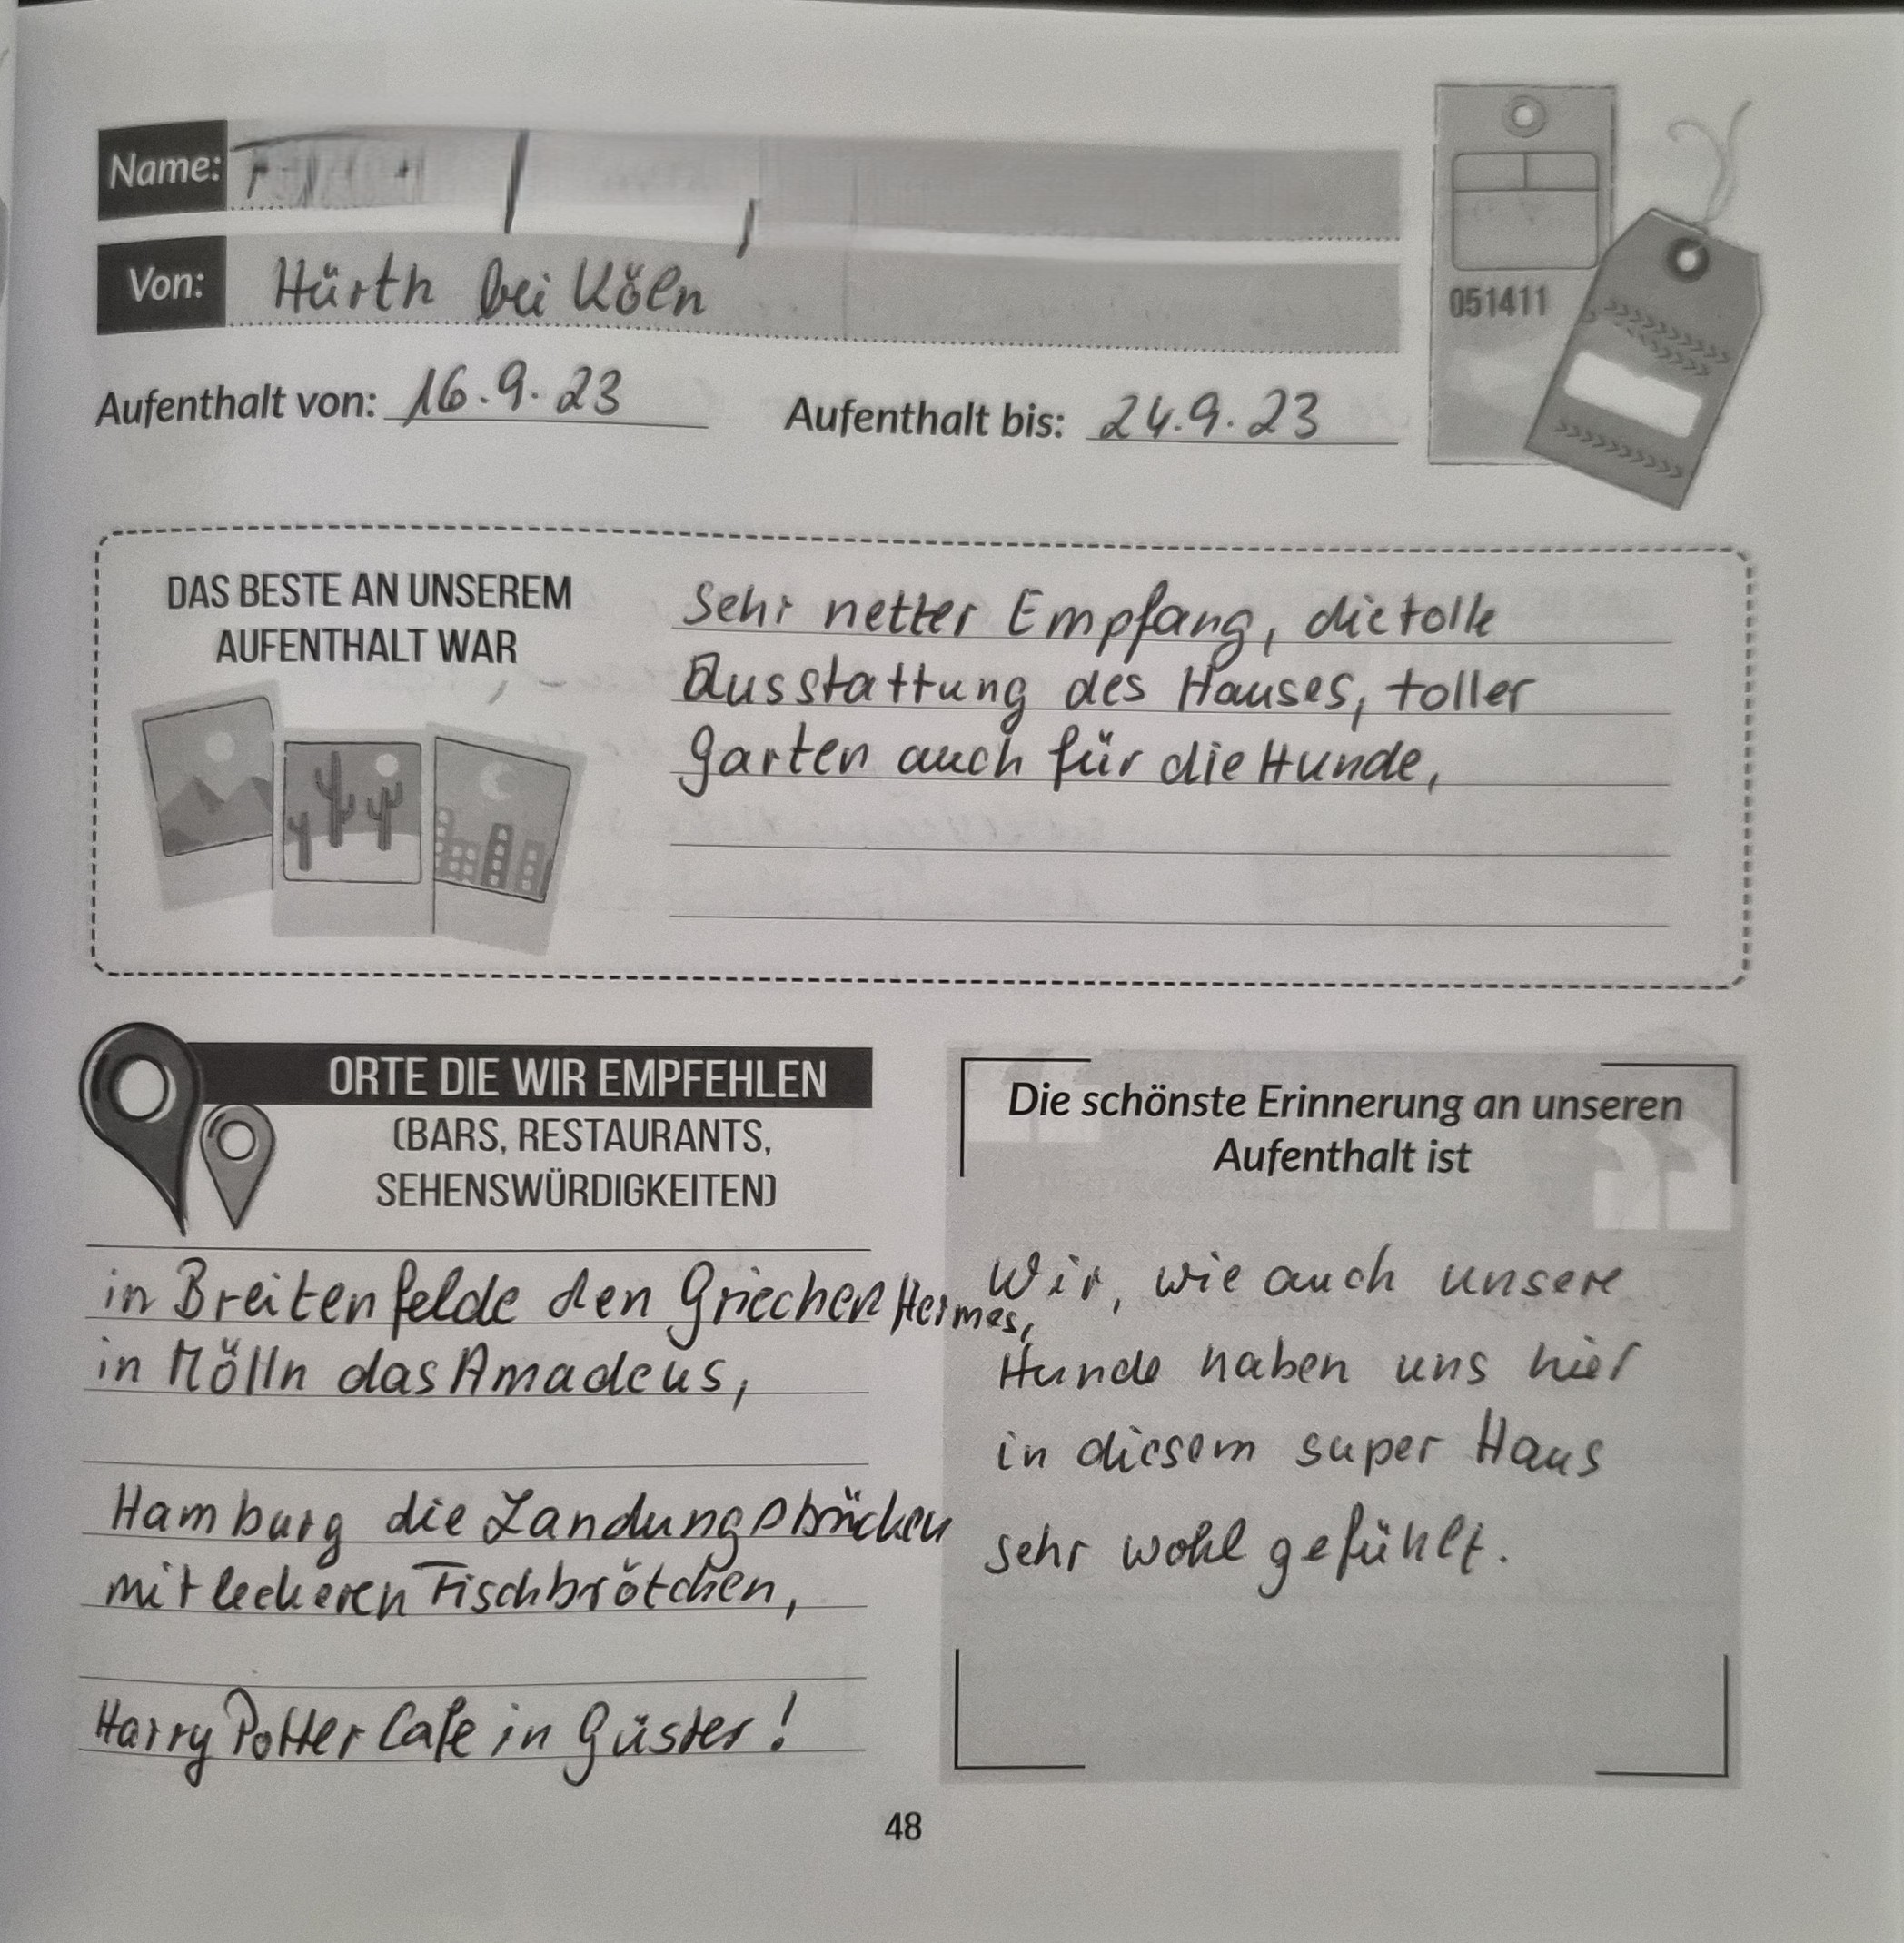 Name:
Von: Hürth bei Köln
Aufenthalt von: 16.9.23 Aufenthalt bis: 24.9.23
051411
DAS BESTE AN UNSEREM
AUFENTHALT WAR
Sehr netter Empfang, die tolle
Ausstattung des Hauses, toller
Garten auch für die Hunde,
ORTE DIE WIR EMPFEHLEN
(BARS, RESTAURANTS,
SEHENSWÜRDIGKEITEN)
in Breitenfelde den Griechen Hermes,
in Mölln das Amadeus,
Hamburg die Landungsbrücken
mit leckeren Fischbrötchen,
Harry Potter Cafe in Güster!
Die schönste Erinnerung an unseren
Aufenthalt ist
Wir, wie auch unsere
Hunde haben uns hier
in diesem super Haus
sehr wohl gefühlt.
48